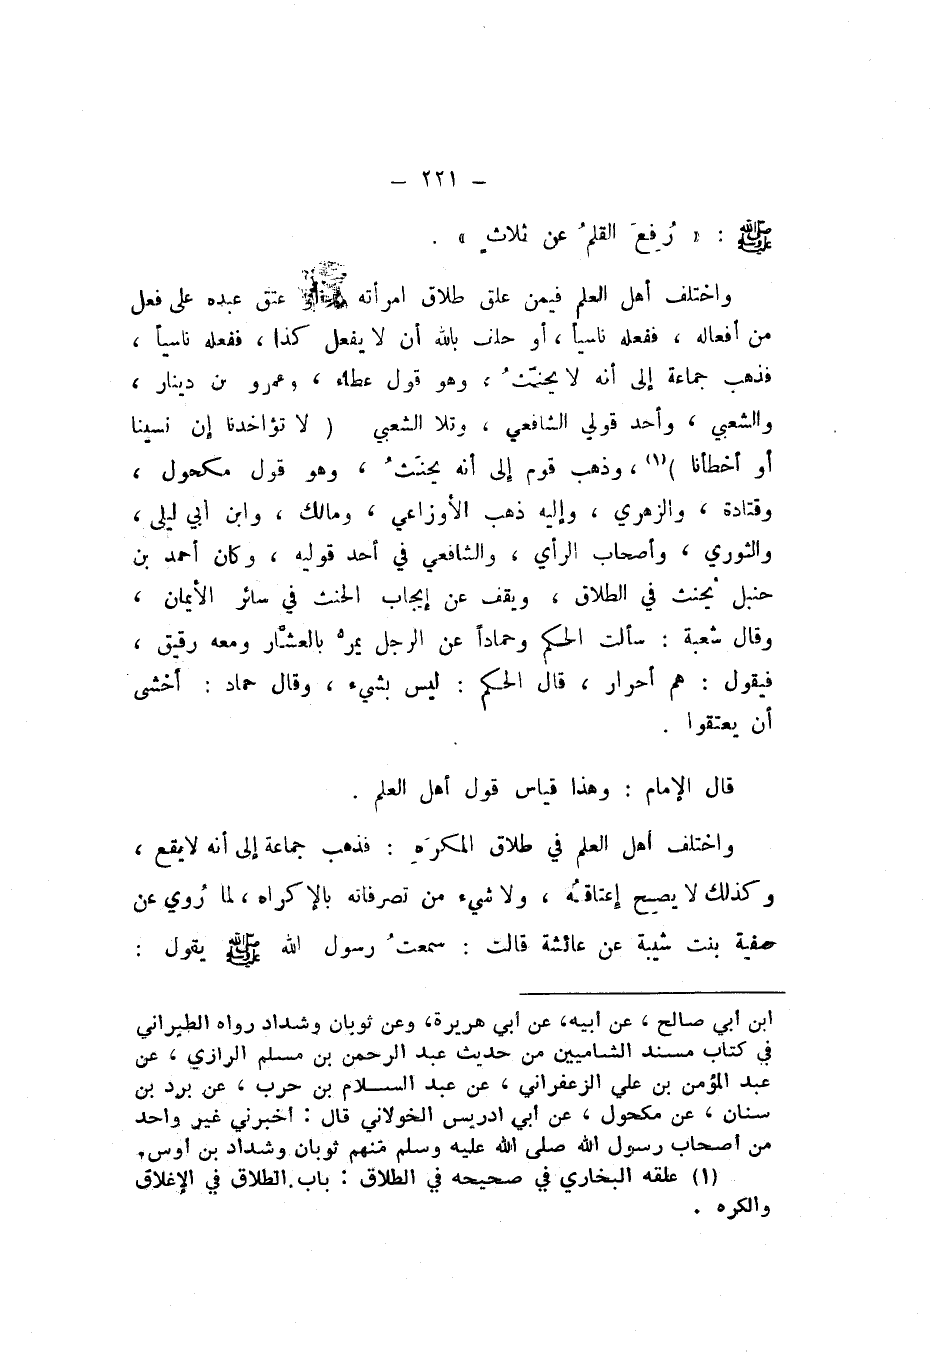 – ٢٢١ –
ﷺ : « رُفِعَ القلمُ عن ثلاثٍ » .
واختلف أهل العلم فيمن علق طلاق امرأته أو عتق عبده على فعل
من أفعاله ، ففعله ناسياً ، أو حلف بالله أن لا يفعل كذا ، ففعله ناسياً ،
فذهب جماعة إلى أنه لا يحنَثُ ، وهو قول عطاء ، وعمرو بن دينار ،
والشعبي ، وأحد قولي الشافعي ، وتلا الشعبي ( لا تؤاخدنا إن نسينا
أو أخطأنا )(١) ، وذهب قوم إلى أنه يحنَثُ ، وهو قول مكحول ،
وقتادة ، والزهري ، وإليه ذهب الأوزاعي ، ومالك ، وابن أبي ليلى ،
والثوري ، وأصحاب الرأي ، والشافعي في أحد قوليه ، وكان أحمد بن
حنبل يُحنث في الطلاق ، ويقف عن إيجاب الحنث في سائر الأيمان ،
وقال شعبة : سألت الحكم وحماداً عن الرجل يمرُّ بالعشَّار ومعه رقيق ،
فيقول : هم أحرار ، قال الحكم : ليس بشيء ، وقال حماد : أخشى
أن يعتقوا .
قال الإمام : وهذا قياس قول أهل العلم .
واختلف أهل العلم في طلاق المكرَهِ : فذهب جماعة إلى أنه لايقع ،
وكذلك لا يصح إعتاقُه ، ولا شيء من تصرفاته بالإكراه ، لما رُوي عن
صفية بنت شيبة عن عائشة قالت : سمعتُ رسول الله ﷺ يقول :
ابن أبي صالح ، عن أبيه، عن أبي هريرة، وعن ثوبان وشداد رواه الطبراني
في كتاب مسند الشاميين من حديث عبد الرحمن بن مسلم الرازي ، عن
عبد المؤمن بن علي الزعفراني ، عن عبد السلام بن حرب ، عن برد بن
سنان ، عن مكحول ، عن أبي ادريس الخولاني قال : أخبرني غير واحد
من أصحاب رسول الله صلى الله عليه وسلم منهم ثوبان وشداد بن أوس.
(١) علقه البخاري في صحيحه في الطلاق : باب الطلاق في الإغلاق
والكره .